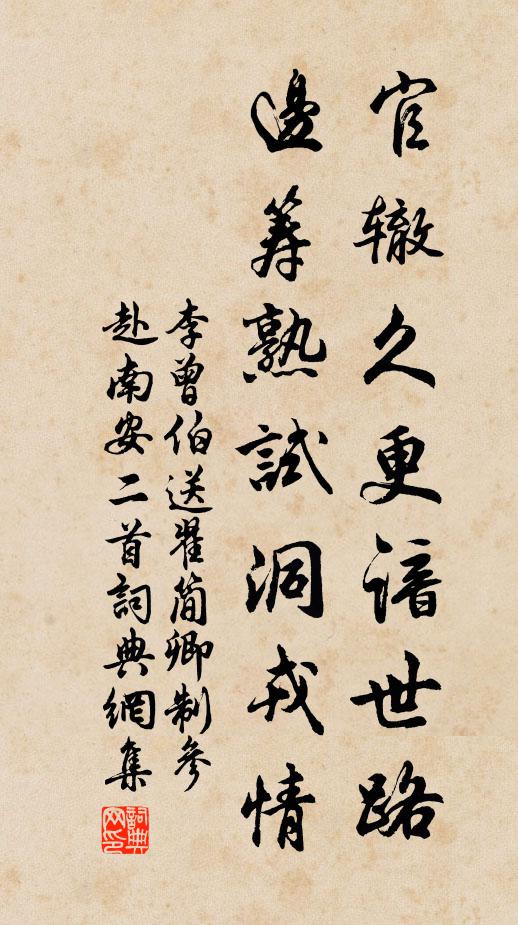 官辙久更谙世路
邊筹熟試洞戎情
李曾伯送翟簡卿制參
赴南安二首詞典網集
詞典网印